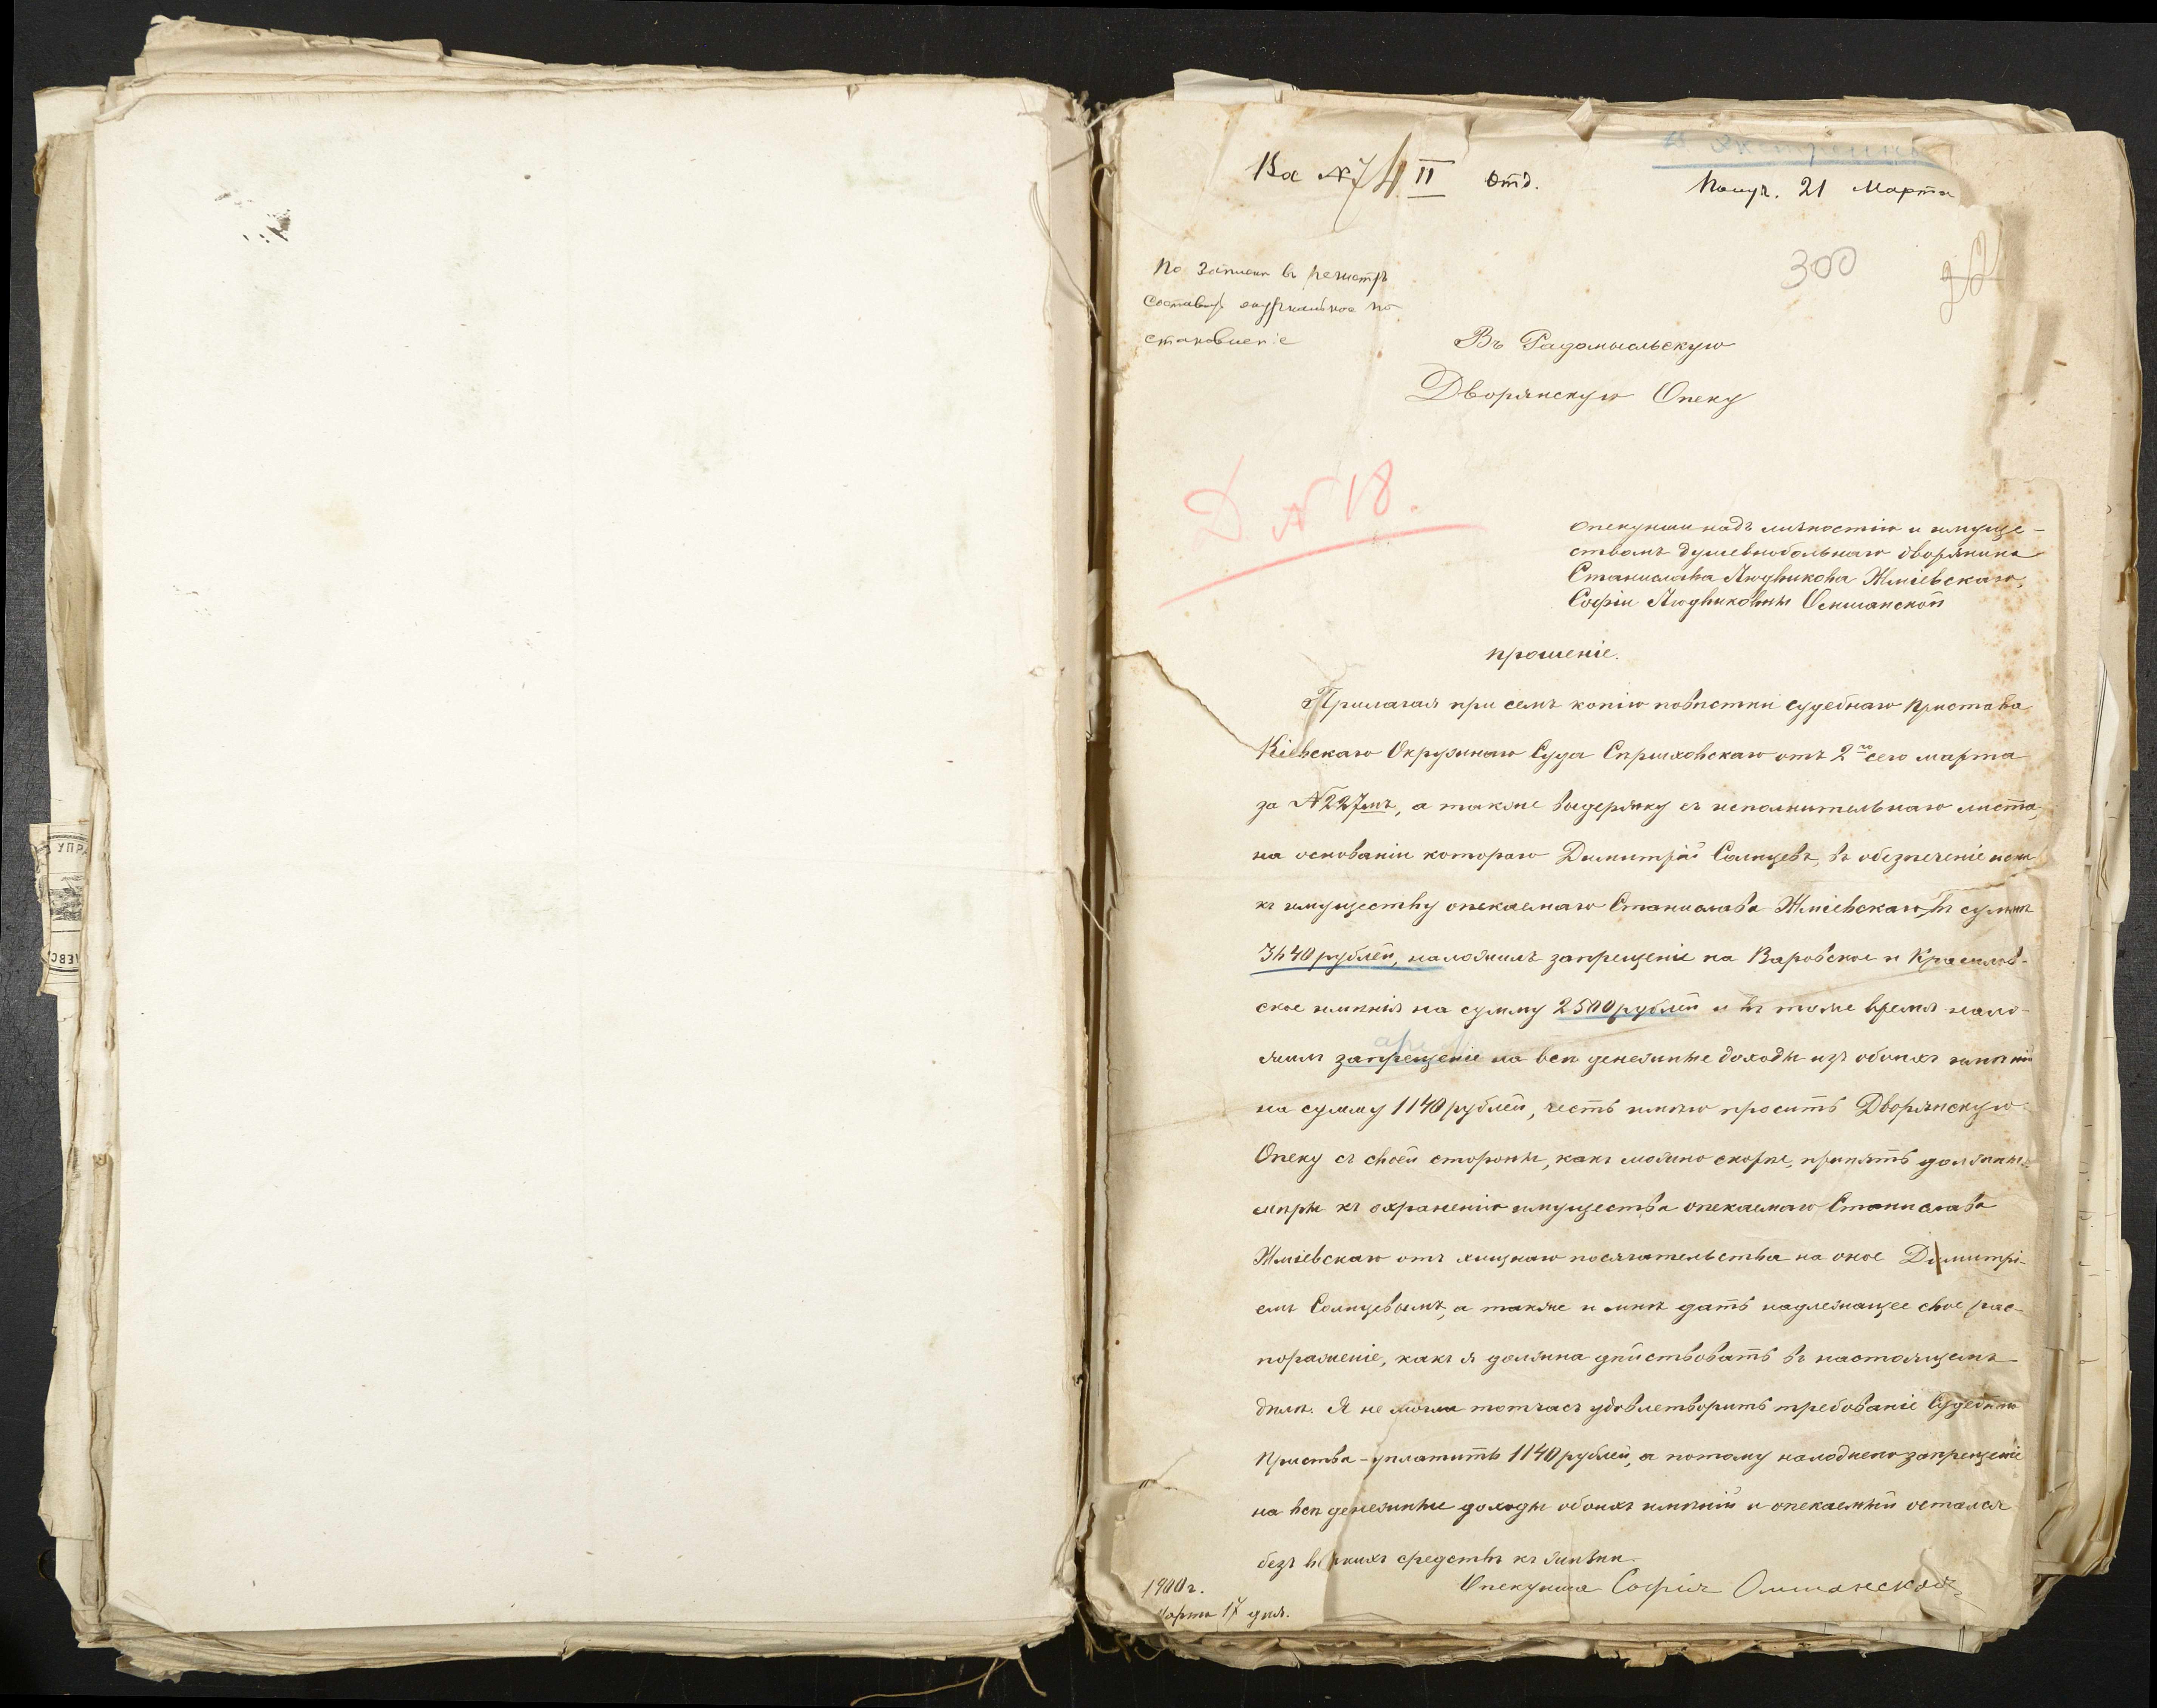 Вх № 74 II отд.
Получ. 21 Марта
300
По записки въ регистръ
составить журнальное по-
становленіе
Въ Радомысльскую
Дворянскую Опеку
Д № 18.
опекунши надъ личностію и имуще-
ствомъ душевнобольнаго дворянина
Станислава Людвикова Жміевскаго,
Софіи Людвиковны
прошеніе.
Прилагая при семъ копію повѣстки судебнаго пристава
Кіевскаго Окружнаго Суда Сприховскаго отъ 2го сего марта
за № 227мъ, а также выдержку съ исполнительнаго листа,
на основаніи котораго Димитрій Солнцевъ, въ обезпеченіе иска
къ имуществу опекаемаго Станислава Жміевскаго въ суммѣ
3640 рублей, наложилъ запрещеніе на Варовское и Красилов-
ское имѣнія на сумму 2500 рублей и въ тоже время нало-
жилъ запрещеніе на всѣ денежные доходы изъ обоихъ имѣній
на сумму 1140 рублей, честь имѣю просить Дворянскую
Опеку съ своей стороны, какъ можно скорѣе, принять должны
мѣры къ охраненію имущества опекаемаго Станислава
Жміевскаго отъ хищнаго посягательства на оное Димитрі-
емъ Солнцевымъ, а также и мнѣ дать надлежащее свое рас-
поряженіе, какъ я должна дѣйствовать въ настоящемъ
дѣлѣ. Я не могла тотчасъ удовлетворить требованіе Судебнаго
Приства - уплатить 1140 рублей, а потому наложено запрещеніе
на всѣ денежные доходы обоихъ имѣній и опекаемый остался
безъ всякихъ средствъ къ жизни.
Опекунша Софія
1900 г.
Марта 17 дня.
УПРА